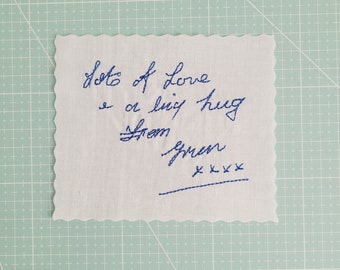 Lots of Love
& a big hug
From
Gran
xxxx